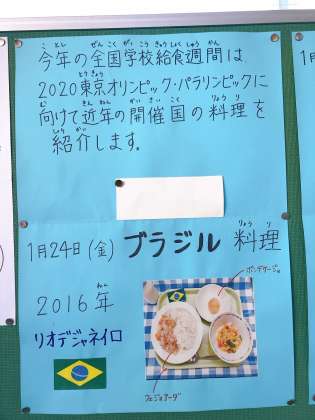 今年の全国学校給食週間は
2020東京オリンピック・パラリンピックに
向けて近年の開催国の料理を
紹介します。
1月24日(金) ブラジル 料理
ポンデケージョ
2016年
リオデジャネイロ
フェジョアーダ